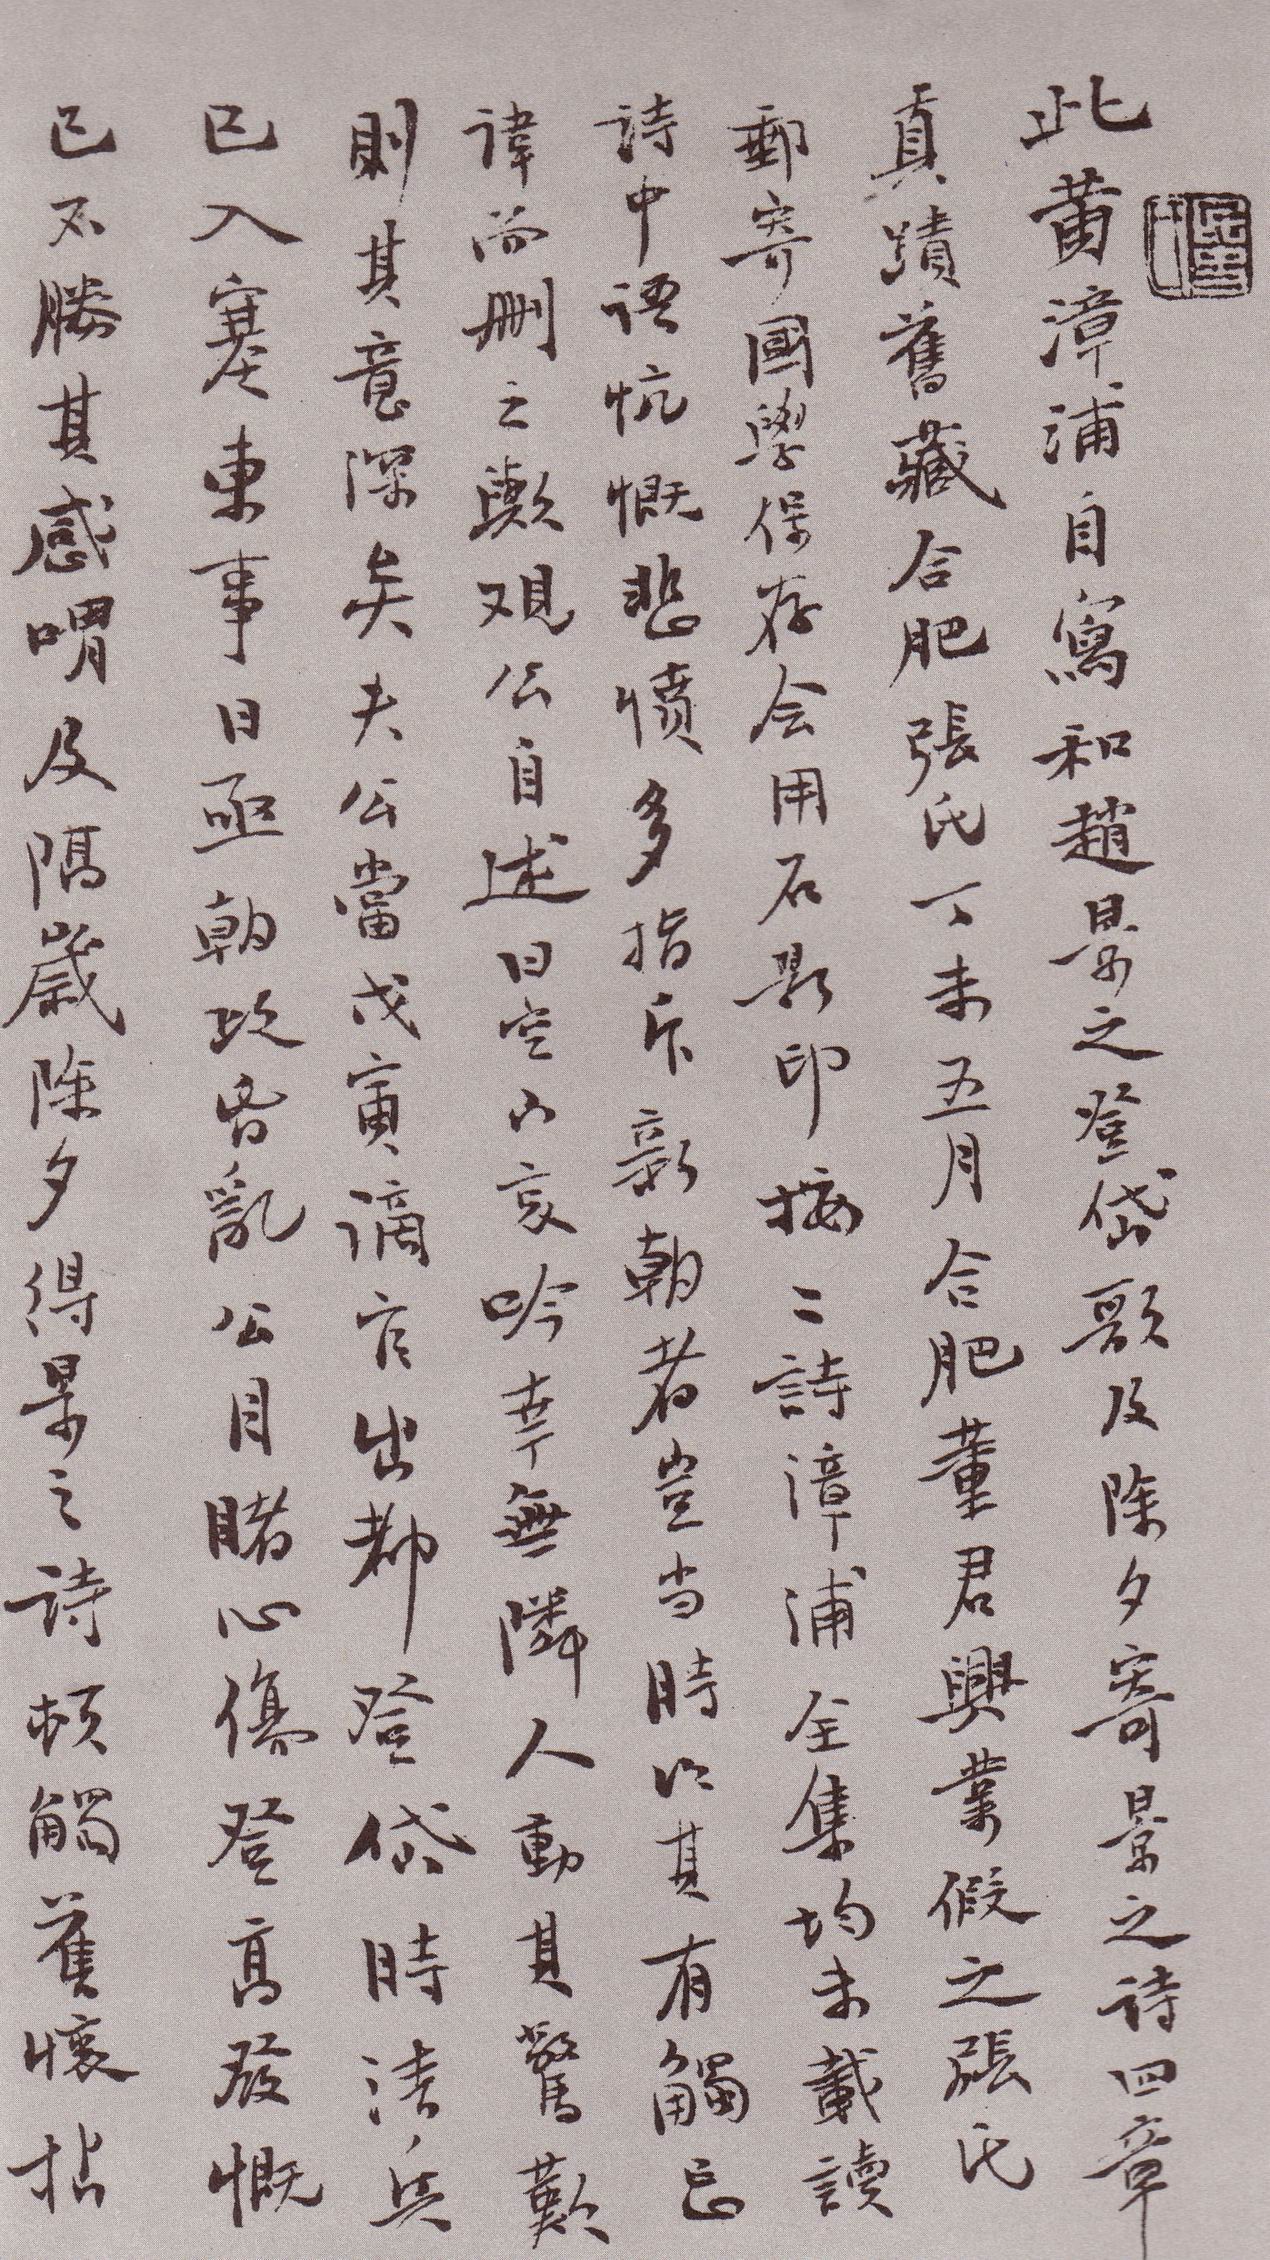 此黃漳浦自寫和趙景之登岱歌及除夕寄景之詩四章
真蹟舊藏合肥張氏丁未五月合肥董君興業假之張氏
郵寄國學保存会用石影印按二詩漳浦全集均未載讀
詩中語忼慨悲憤多指斥新朝者豈当時以其有觸忌
諱而刪之歟观公自述曰空山哀吟幸無隣人動其驚歎
則其意深矣夫公當戊寅謫官出都登岱時清兵
已入塞東事日亟朝政昏亂公目睹心傷登高發慨
已不勝其感喟及隔歲除夕得景之詩頓觸舊懷拈